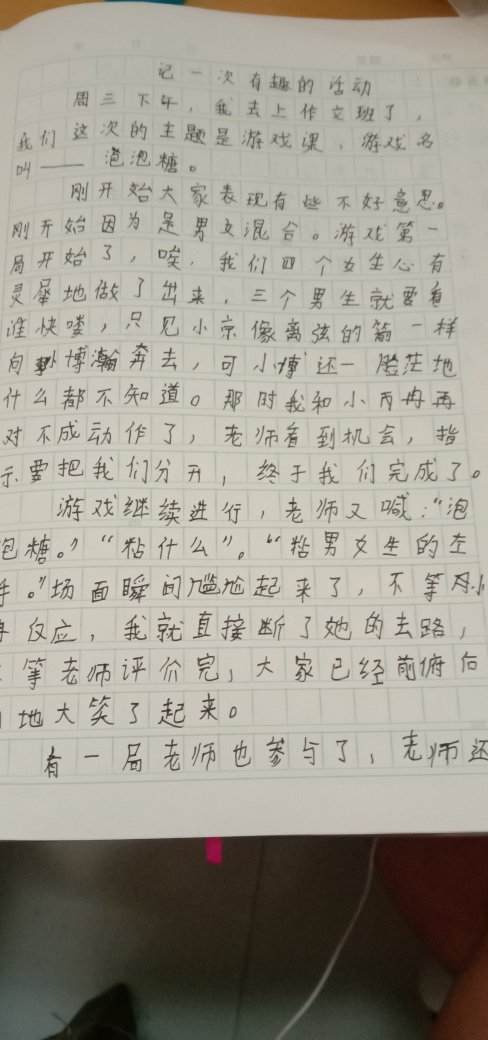 记一次有趣的活动
周三下午，我去上作文班了，
我们这次的主题是游戏课，游戏名
叫——泡泡糖。
刚开始大家表现有些不好意思。
刚开始因为是男女混合。游戏第一
局开始了，唉，我们四个女生心有
灵犀地做了出来，三个男生就要看
谁快喽，只见小京像离弦的箭一样
向博瀚奔去，可小博还一脸茫地
什么都不知道。那时我和小丙冉再
对不成动作了，老师看到机会，指
示要把我们分开，终于我们完成了。
游戏继续进行，老师又喊：“泡
泡糖。”“粘什么”。“粘男女生的左
手。”场面瞬间尴尬起来了，不等
反应，我就直接断了她的去路，
等老师评价完，大家已经前俯后
地大笑了起来。
有一局老师也参与了，老师还